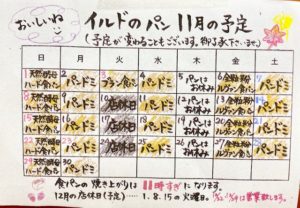 おいしいね
イルドのパン 11月の予定
(予定が変わることもございます。御了承下さいませ。)
日 月 火 水 木 金 土
1 天然酵母 ハード食パン 2 パンドミ 3 フランス食パン 4 パンドミ 5 パンはお休み 6 全粒粉 7 パンドミ
8 天然酵母 ハード食パン 9 パンドミ 10 店休日 11 パンドミ 12 パンはお休み 13 全粒粉 14 パンドミ
15 天然酵母 ハード食パン 16 パンドミ 17 店休日 18 パンドミ 19 パンはお休み 20 全粒粉 21 パンドミ
22 天然酵母 ハード食パン 23 パンドミ 24 店休日 25 パンドミ 26 パンはお休み 27 全粒粉 28 パンドミ
29 天然酵母 ハード食パン 30 パンドミ
食パンの焼き上がりは 11時すぎ になります。
12月の店休日(予定)…… 1.8.15の火曜日。
は営業致します。